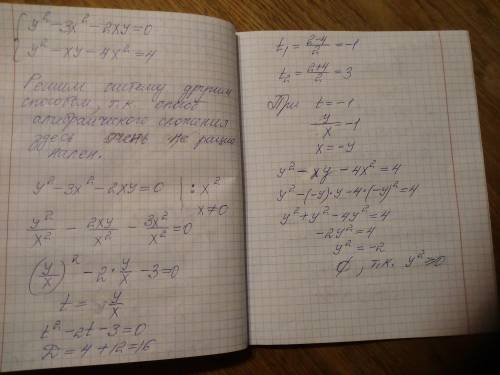 { y² - 3x² - 2xy = 0
y² - xy - 4x² = 4
Решим систему другим
способом, т.к. способ
алгебраического сложения
здесь очень не рацио
нален.
y² - 3x² - 2xy = 0 | : x²
x ≠ 0
y²/x² - 2xy/x² - 3x²/x² = 0
(y/x)² - 2 * y/x - 3 = 0
t = y/x
t² - 2t - 3 = 0
D = 4 + 12 = 16
t₁ = (2-4)/2 = -1
t₂ = (2+4)/2 = 3
При t = -1
y/x = -1
x = -y
y² - xy - 4x² = 4
y² - (-y)·y - 4·(-y)² = 4
y² + y² - 4y² = 4
-2y² = 4
y² = -2
∅, т.к. y² ≥ 0